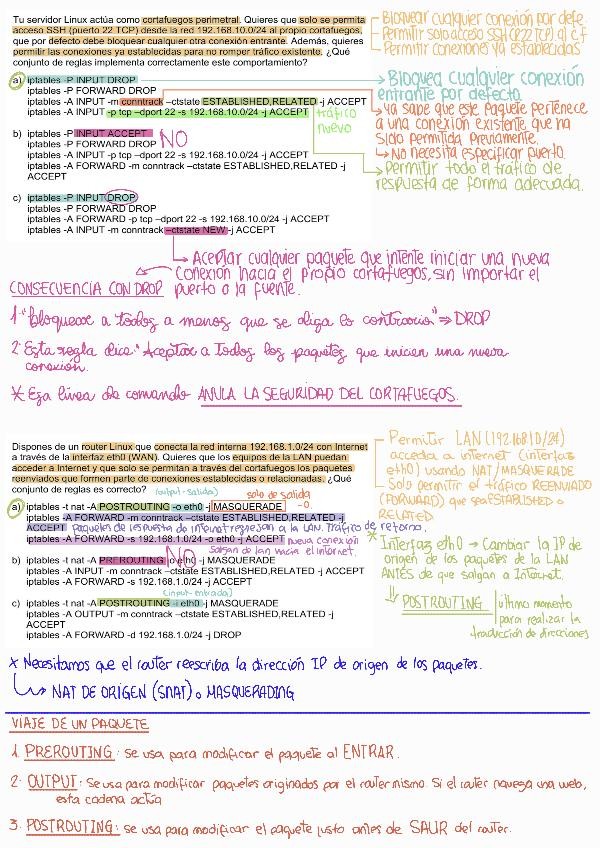 Tu servidor Linux actúa como cortafuegos perimetral. Quieres que solo se permita
acceso SSH (puerto 22 TCP) desde la red 192.168.10.0/24 al propio cortafuegos,
que por defecto debe bloquear cualquier otra conexión entrante. Además, quieres
permitir las conexiones ya establecidas para no romper tráfico existente. ¿Qué
conjunto de reglas implementa correctamente este comportamiento?
Bloquear cualquier conexión por defe.
Permitir solo acceso SSH (P.22 TCP) al c.f
Permitir conexiones ya establecidas
a) iptables -P INPUT DROP
iptables -P FORWARD DROP
iptables -A INPUT -m conntrack –ctstate ESTABLISHED,RELATED -j ACCEPT
iptables -A INPUT -p tcp –dport 22 -s 192.168.10.0/24 -j ACCEPT
tráfico
nuevo
Bloquea cualquier conexión
entrante por defecto.
Ya sabe que este paquete pertenece
a una conexión existente que ha
sido permitida previamente.
No necesita especificar puerto.
Permitir todo el tráfico de
respuesta de forma adecuada.
b) iptables -P INPUT ACCEPT
NO
iptables -P FORWARD DROP
iptables -A INPUT -p tcp –dport 22 -s 192.168.10.0/24 -j ACCEPT
iptables -A FORWARD -m conntrack –ctstate ESTABLISHED,RELATED -j
ACCEPT
c) iptables -P INPUT DROP
iptables -P FORWARD DROP
iptables -A FORWARD -p tcp –dport 22 -s 192.168.10.0/24 -j ACCEPT
iptables -A INPUT -m conntrack –ctstate NEW -j ACCEPT
Aceptar cualquier paquete que intente iniciar una nueva
conexión hacia el propio cortafuegos, sin importar el
puerto o la fuente.
CONSECUENCIA CON DROP
1. "bloquear a todos a menos que se diga lo contrario" ⇒ DROP
2. Esta regla dice "Aceptar a todos los paquetes que inicien una nueva
conexión.
* Esa línea de comando ANULA LA SEGURIDAD DEL CORTAFUEGOS.
Dispones de un router Linux que conecta la red interna 192.168.1.0/24 con Internet
a través de la interfaz eth0 (WAN). Quieres que los equipos de la LAN puedan
acceder a Internet y que solo se permitan a través del cortafuegos los paquetes
reenviados que formen parte de conexiones establecidas o relacionadas. ¿Qué
conjunto de reglas es correcto?
Permitir LAN (192.168.1.0/24)
acceda a internet (interfaz
eth0) usando NAT/MASQUERADE
Solo permitir el tráfico REENVIADO
(FORWARD) que sea ESTABLISHED o
RELATED
(output-salida)
solo de salida
-o
a) iptables -t nat -A POSTROUTING -o eth0 -j MASQUERADE
iptables -A FORWARD -m conntrack –ctstate ESTABLISHED,RELATED -j
ACCEPT paquetes de respuesta de internet regresen a la LAN. Tráfico de retorno.
iptables -A FORWARD -s 192.168.1.0/24 -o eth0 -j ACCEPT
nueva conexión
salgan de lan hacia el internet.
NO
b) iptables -t nat -A PREROUTING -o eth0 -j MASQUERADE
iptables -A INPUT -m conntrack –ctstate ESTABLISHED,RELATED -j ACCEPT
iptables -A FORWARD -s 192.168.1.0/24 -j ACCEPT
(input-entrada)
c) iptables -t nat -A POSTROUTING -i eth0 -j MASQUERADE
iptables -A OUTPUT -m conntrack –ctstate ESTABLISHED,RELATED -j
ACCEPT
iptables -A FORWARD -d 192.168.1.0/24 -j DROP
* Interfaz eth0 → Cambiar la IP de
origen de los paquetes de la LAN
ANTES de que salgan a Internet.
⇓ POSTROUTING
último momento
para realizar la
traducción de direcciones
* Necesitamos que el router reescriba la dirección IP de origen de los paquetes.
NAT DE ORIGEN (SNAT) o MASQUERADING
VIAJE DE UN PAQUETE
1. PREROUTING: Se usa para modificar el paquete al ENTRAR.
2. OUTPUT: Se usa para modificar paquetes originados por el router mismo. Si el router navega una web,
esta cadena actúa
3. POSTROUTING: se usa para modificar el paquete justo antes de SALIR del router.